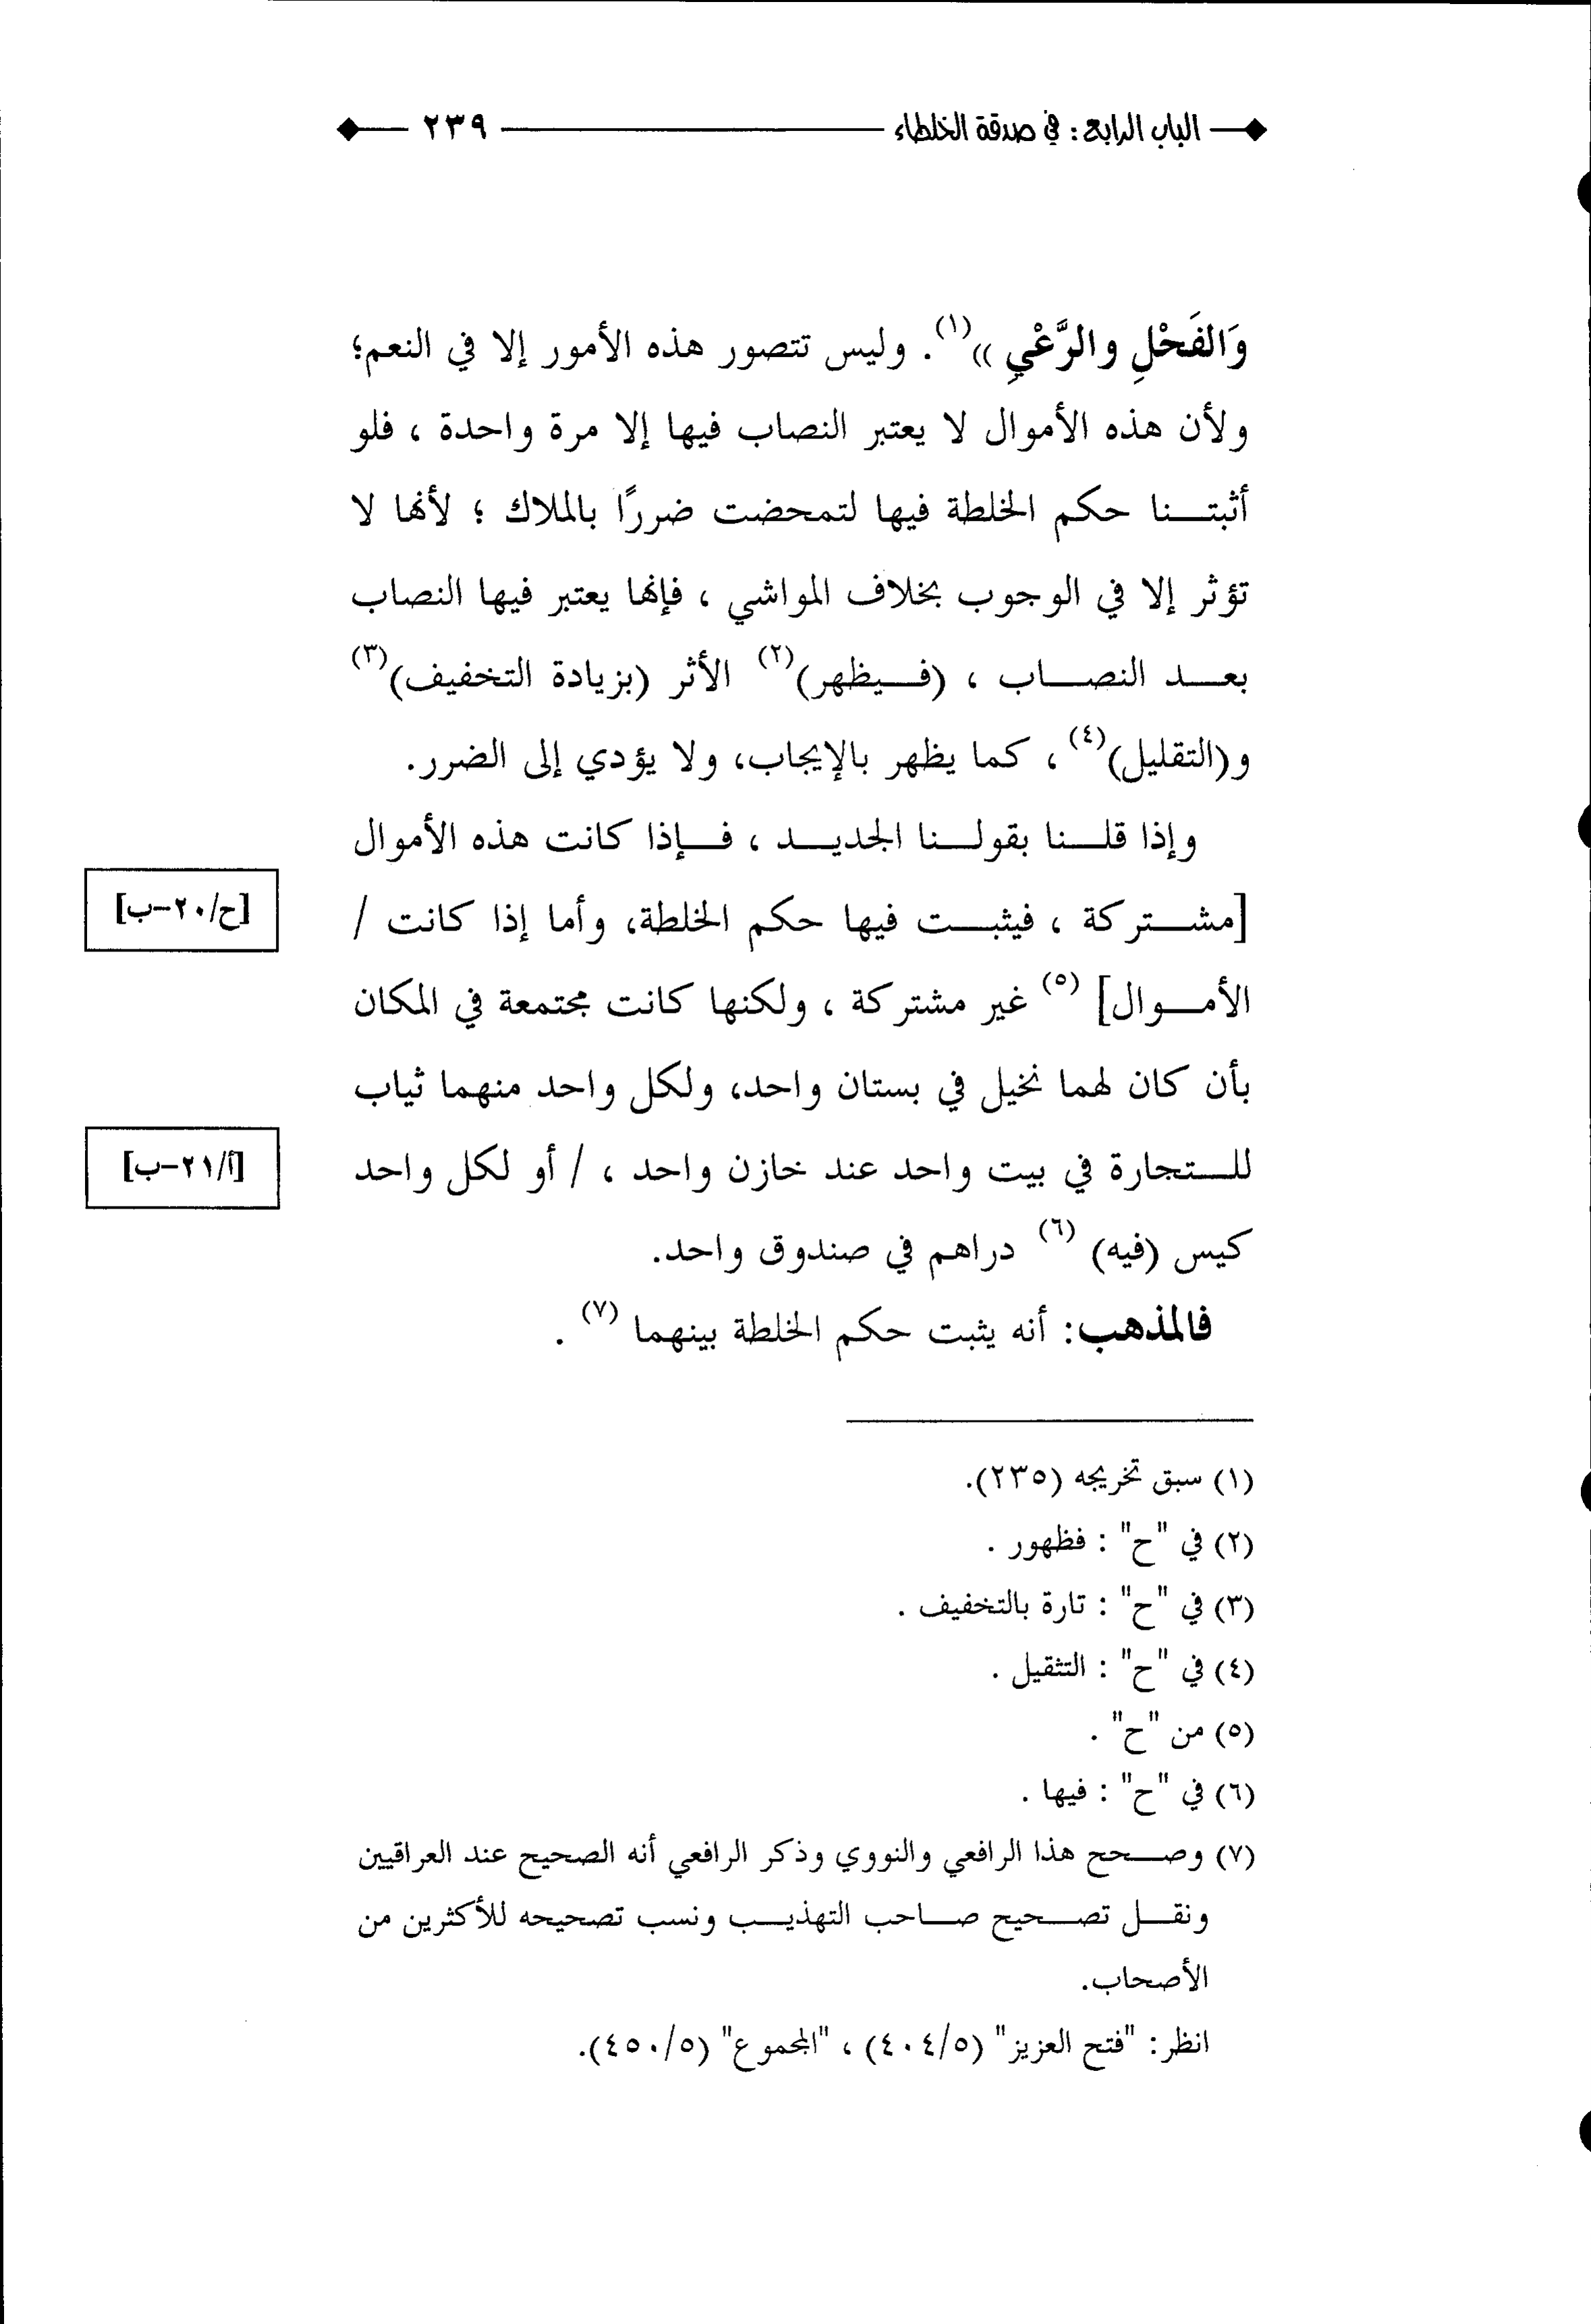 الباب الرابع : في صدقة الخلطاء ٢٣٩
وَالفَحْلِ والرَّعْيِ »(١). وليس تتصور هذه الأمور إلا في النعم؛
ولأن هذه الأموال لا يعتبر النصاب فيها إلا مرة واحدة ، فلو
أثبتـــنا حكم الخلطة فيها لتمحضت ضررًا بالملاك ؛ لأنها لا
تؤثر إلا في الوجوب بخلاف المواشي ، فإنها يعتبر فيها النصاب
بعـــد النصـــاب ، (فـــيظهر)(٢) الأثر (بزيادة التخفيف)(٣)
و(التقليل)(٤) ، كما يظهر بالإيجاب، ولا يؤدي إلى الضرر.
وإذا قلـــنا بقولـــنا الجديـــد ، فـــإذا كانت هذه الأموال
[مشـــتركة ، فيثبـــت فيها حكم الخلطة، وأما إذا كانت /
[ح/٢٠-ب]
الأمـــوال] (٥) غير مشتركة ، ولكنها كانت مجتمعة في المكان
بأن كان لهما نخيل في بستان واحد، ولكل واحد منهما ثياب
للـــتجارة في بيت واحد عند خازن واحد ، / أو لكل واحد
[أ/٢١-ب]
كيس (فيه) (٦) دراهم في صندوق واحد.
فالمذهب: أنه يثبت حكم الخلطة بينهما (٧) .
(١) سبق تخريجه (٢٣٥).
(٢) في "ح" : فظهور .
(٣) في "ح" : تارة بالتخفيف .
(٤) في "ح" : التثقيل .
(٥) من "ح" .
(٦) في "ح" : فيها .
(٧) وصـــحح هذا الرافعي والنووي وذكر الرافعي أنه الصحيح عند العراقيين
ونقـــل تصـــحيح صـــاحب التهذيـــب ونسب تصحيحه للأكثرين من
الأصحاب.
انظر: "فتح العزيز" (٤٠٤/٥) ، "المجموع" (٤٥٠/٥).